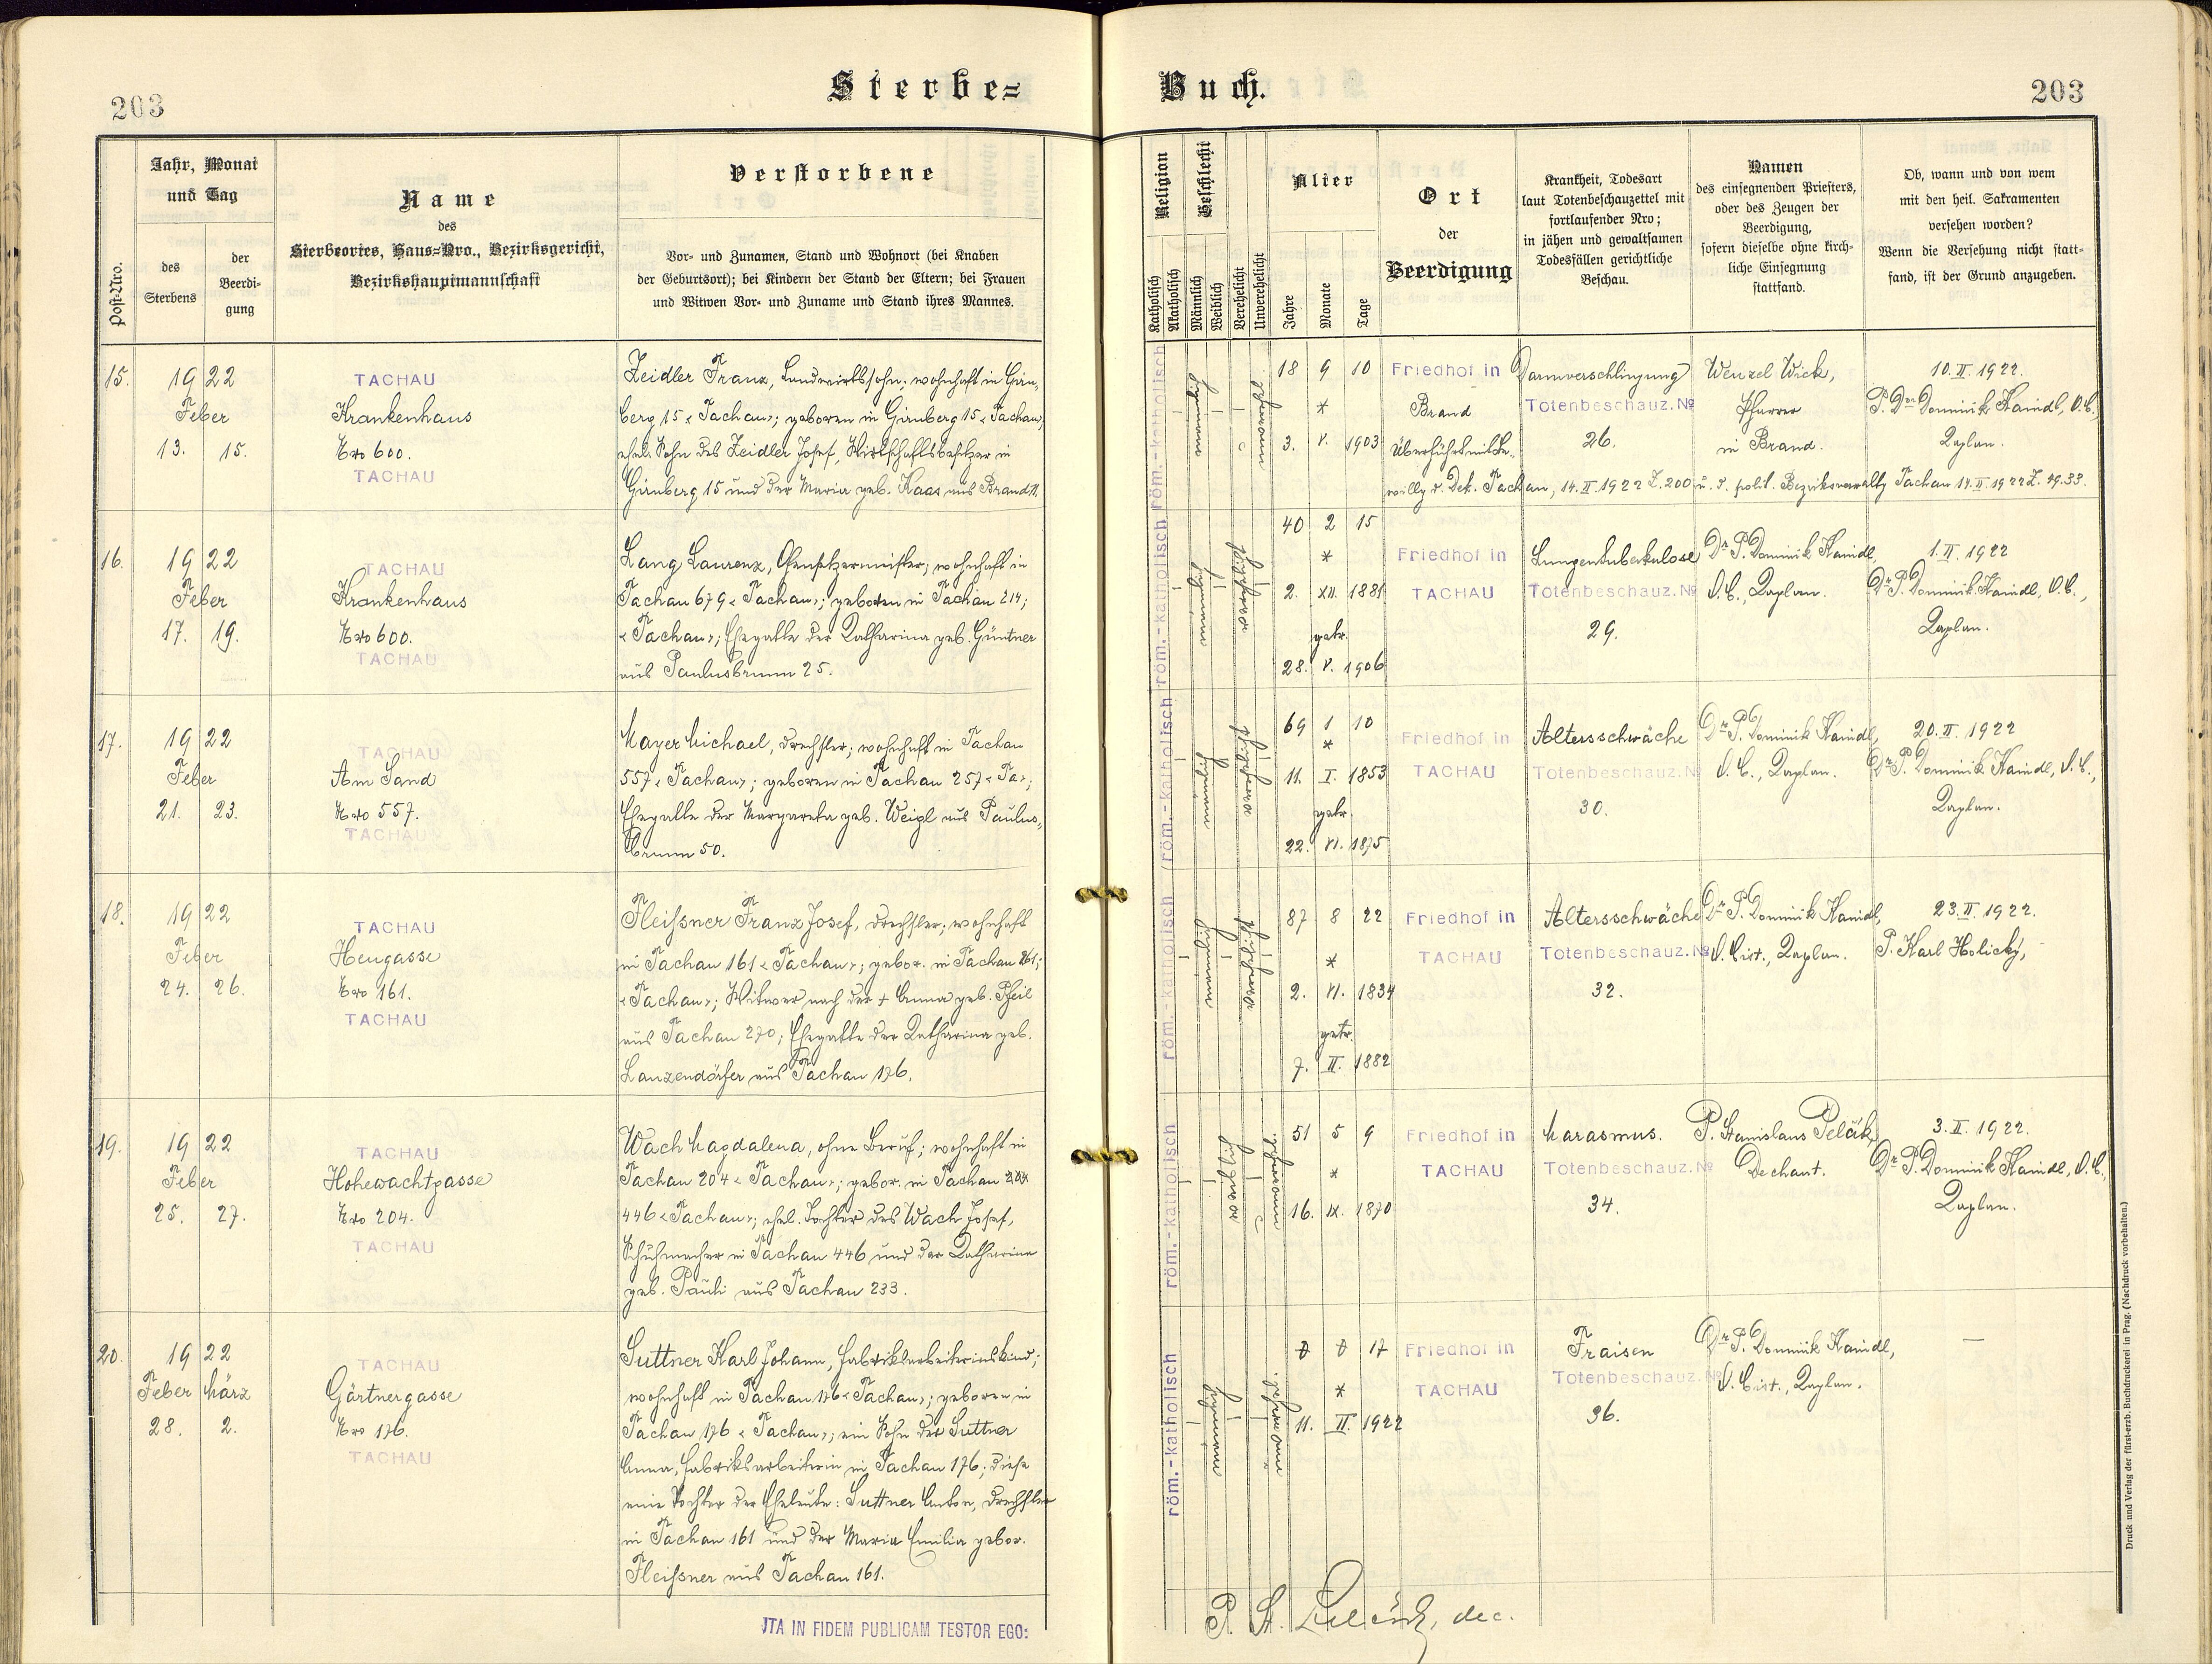 203
Sterbe=
Buch.
203
Post-Nro.
Jahr, Monat und Tag
des Sterbens
der Beerdi-gung
Name
des
Sterbeortes, Haus=Nro., Bezirksgericht,
Bezirkshauptmannschaft
Verstorbene
Vor- und Zunamen, Stand und Wohnort (bei Knaben
der Geburtsort); bei Kindern der Stand der Eltern; bei Frauen
und Witwen Vor- und Zuname und Stand ihres Mannes.
Religion
Katholisch
Akatholisch
Geschlecht
Männlich
Weiblich
Verehelicht
Unverehelicht
Alter
Jahre
Monate
Tage
Ort
der
Beerdigung
Krankheit, Todesart
laut Totenbeschauzettel mit
fortlaufender Nro;
in jähen und gewaltsamen
Todesfällen gerichtliche
Beschau.
Namen
des einsegnenden Priesters,
oder des Zeugen der
Beerdigung,
sofern dieselbe ohne kirch-
liche Einsegnung
stattfand.
Ob, wann und von wem
mit den heil. Sakramenten
versehen worden?
Wenn die Versehung nicht statt-
fand, ist der Grund anzugeben.
15.
1922
Feber
13. 15.
TACHAU
Krankenhaus
Nro 600.
TACHAU
Zeidler Franz, Landwirtssohn; wohnhaft in Girn-
berg 15 "Tachau"; geboren in Girnberg 15 "Tachau";
ehel. Sohn des Zeidler Josef, Wirtschaftsbesitzer in
Girnberg 15 und der Maria geb. Haas aus Brand 11.
röm.-katholisch
männlich
18 9 10
*
3. V. 1903
Friedhof in
Brand
Überführt mit Be-
willg d. Dek. Tachau, 14.II.1922 Z.200 u. d. polit. Bezirksverwaltg Tachau 14.II.1922 Z. 49.33.
Darmverschlingung
Totenbeschauz.No
26.
Wenzel Wick,
Pfarrer
in Brand.
10.II.1922.
P. Dr Dominik Kaindl, O.C.,
Kaplan.
16.
1922
Feber
17. 19.
TACHAU
Krankenhaus
Nro 600.
TACHAU
Lang Laurenz, Ofensetzermeister; wohnhaft in
Tachau 679 "Tachau"; geboren in Tachau 214;
"Tachau"; Ehegatte der Katharina geb. Güntner
aus Paulusbrunn 25.
röm.-katholisch
männlich
verehelicht
40 2 15
*
2. XII. 1881
getr.
28. V. 1906
Friedhof in
TACHAU
Lungentuberkulose
Totenbeschauz.No
29.
Dr P. Dominik Kaindl,
O.C., Kaplan.
1.II.1922
Dr P. Dominik Kaindl, O.C.,
Kaplan.
17.
1922
Feber
21. 23.
TACHAU
Am Sand
Nro 557.
TACHAU
Mayer Michael, Drechsler; wohnhaft in Tachau
557 "Tachau"; geboren in Tachau 257 "Ta";
Ehegatte der Margareta geb. Weigl aus Paulus-
brunn 50.
röm.-katholisch
männlich
verehelicht
69 1 10
*
11. I. 1853
getr.
22. VI. 1875
Friedhof in
TACHAU
Altersschwäche
Totenbeschauz.N
30.
Dr P. Dominik Kaindl,
O.C., Kaplan.
20.II.1922
Dr P. Dominik Kaindl, O.C.,
Kaplan.
18.
1922
Feber
24. 26.
TACHAU
Heugasse
Nro 161.
TACHAU
Fleißner Franz Josef, Drechsler; wohnhaft
in Tachau 161 "Tachau"; gebor. in Tachau 261;
"Tachau"; Witwer nach der + Anna geb. Pfeil
aus Tachau 270; Ehegatte der Katharina geb.
Lanzendörfer aus Tachau 176.
röm.-katholisch
männlich
verehelicht
87 8 22
*
2. VI. 1834
getr.
7. II. 1882
Friedhof in
TACHAU
Altersschwäche
Totenbeschauz.No
32.
Dr P. Dominik Kaindl,
O. Cist., Kaplan.
23.II.1922.
P. Karl Holický,
19.
1922
Feber
25. 27.
TACHAU
Hohewachtgasse
Nro 204.
TACHAU
Wach Magdalena, ohne Beruf; wohnhaft in
Tachau 204 "Tachau"; gebor. in Tachau 204
446 "Tachau"; ehel. Tochter des Wach Josef,
Schuhmacher in Tachau 446 und der Katharina
geb. Pauli aus Tachau 233.
röm.-katholisch
weiblich
51 5 9
*
16. IX. 1870
Friedhof in
TACHAU
Marasmus.
Totenbeschauz.No
34.
P. Stanislaus Pelčik,
Dechant.
3.II.1922.
Dr P. Dominik Kaindl, O.C.,
Kaplan.
20.
1922
Feber März
28. 2.
TACHAU
Gärtnergasse
Nro 176.
TACHAU
Suttner Karl Johann, Fabriksarbeiterinskind;
wohnhaft in Tachau 176 "Tachau"; geboren in
Tachau 176 "Tachau"; ein Sohn der Suttner
Anna, Fabriksarbeiterin in Tachau 176; diese
eine Tochter der Eheleute: Suttner Anton, Drechsler
in Tachau 161 und der Maria Emilia gebor.
Fleißner aus Tachau 161.
röm.-katholisch
männlich
0 0 17
*
11. II. 1922
Friedhof in
TACHAU
Fraisen
Totenbeschauz.No
36.
Dr P. Dominik Kaindl,
O. Cist., Kaplan.
—
ITA IN FIDEM PUBLICAM TESTOR EGO:
P. St. Pelčik, dec.
Druck und Verlag der fürst-erzb. Buchdruckerei in Prag. (Nachdruck vorbehalten.)